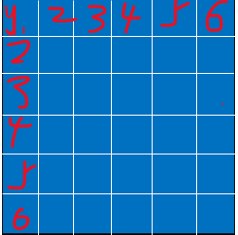 y 2 3 4 5 6
2
3
4
5
6